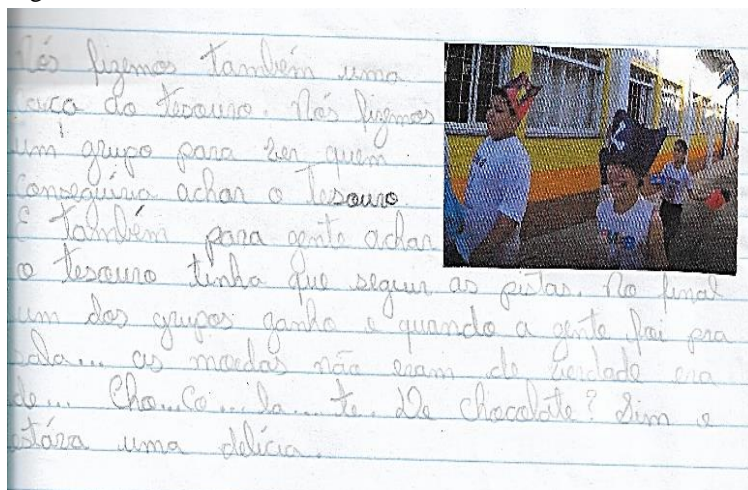 Nós fizemos também uma
caça do tesouro. Nós fizemos
um grupo para ver quem
conseguiria achar o tesouro.
E também para gente achar
o tesouro tinha que seguir as pistas. No final
um dos grupos ganho e quando a gente foi pra
sala... as moedas não eram de verdade era
de... Cho...Co...la...te. De chocolate? Sim e
estáva uma delícia.